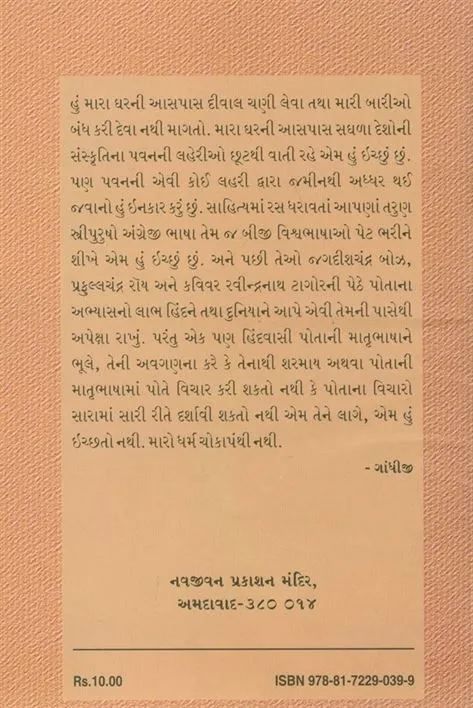 હું મારા ઘરની આસપાસ દીવાલ ચણી લેવા તથા મારી બારીઓ
બંધ કરી દેવા નથી માગતો. મારા ઘરની આસપાસ સઘળા દેશોની
સંસ્કૃતિના પવનની લહેરીઓ છૂટથી વાતી રહે એમ હું ઇચ્છું છું.
પણ પવનની એવી કોઈ લહરી દ્વારા જમીનથી અધ્ધર થઈ
જવાનો હું ઇનકાર કરું છું. સાહિત્યમાં રસ ધરાવતાં આપણાં તરુણ
સ્ત્રીપુરુષો અંગ્રેજી ભાષા તેમ જ બીજી વિશ્વભાષાઓ પેટ ભરીને
શીખે એમ હું ઇચ્છું છું. અને પછી તેઓ જગદીશચંદ્ર બોઝ,
પ્રફુલ્લચંદ્ર રૉય અને કવિવર રવીન્દ્રનાથ ટાગોરની પેઠે પોતાના
અભ્યાસનો લાભ હિંદને તથા દુનિયાને આપે એવી તેમની પાસેથી
અપેક્ષા રાખું. પરંતુ એક પણ હિંદવાસી પોતાની માતૃભાષાને
ભૂલે, તેની અવગણના કરે કે તેનાથી શરમાય અથવા પોતાની
માતૃભાષામાં પોતે વિચાર કરી શકતો નથી કે પોતાના વિચારો
સારામાં સારી રીતે દર્શાવી શકતો નથી એમ તેને લાગે, એમ હું
ઇચ્છતો નથી. મારો ધર્મ ચોકાપંથી નથી.
- ગાંધીજી
નવજીવન પ્રકાશન મંદિર,
અમદાવાદ-૩૮૦ ૦૧૪
Rs.10.00 ISBN 978-81-7229-039-9